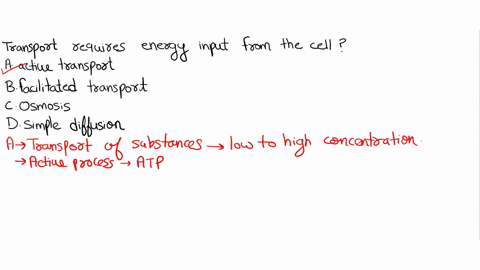 Transport requires energy input from the cell?
A. active transport
B. facilitated transport
C. Osmosis
D. Simple diffusion
A → Transport of substances → low to high concentration.
→ Active process → ATP